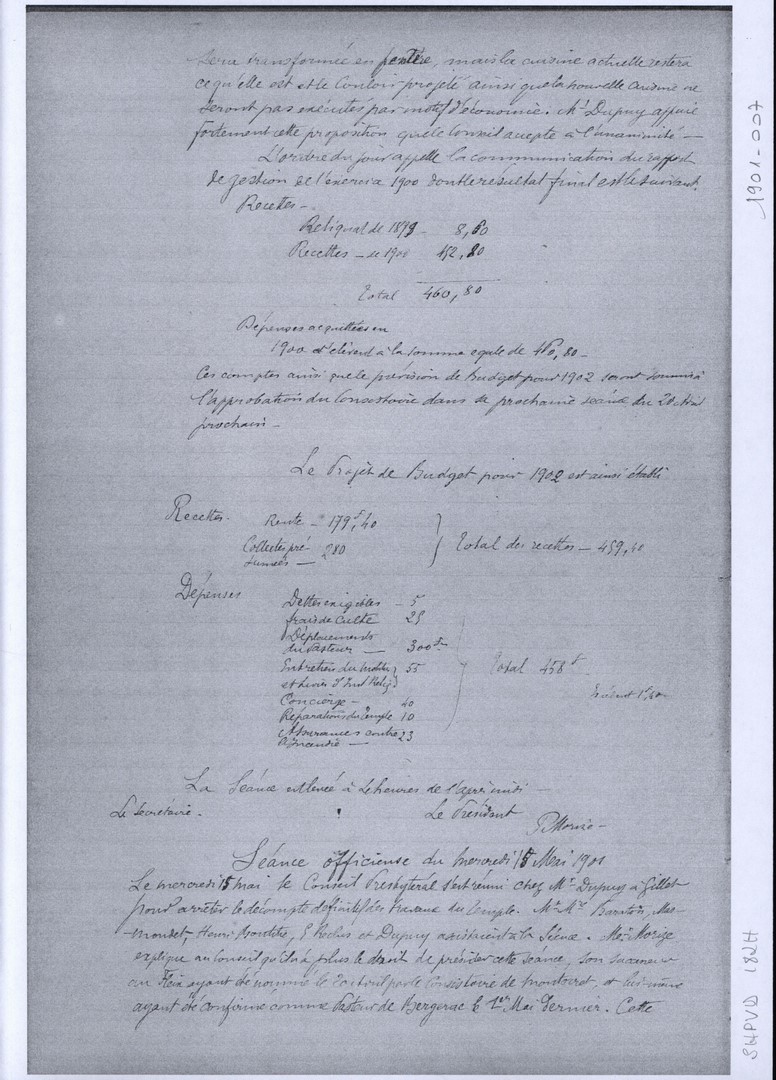 sera transformée en fenêtre, mais la cuisine actuelle restera
ce qu'elle est et le couloir projeté ainsi que la nouvelle cuisine ne
seront pas exécutés par motif d'économie. Mr Dupuy appuie
fortement cette proposition que le Conseil accepte à l'unanimité —
L'ordre du jour appelle la communication du rapport
de gestion de l'exercice 1900 dont le résultat final est le suivant
Recettes —
Reliquat de 1899 — 8,60
Recettes — de 1900 452,80
Total 460,80
Dépenses acquittées en
1900 s'élèvent à la somme égale de 460,80 —
Ces comptes ainsi que le prévision de Budget pour 1902 seront soumis à
l'approbation du Consistoire dans sa prochaine séance du 20
prochain —
Le Projet de Budget pour 1902 est ainsi établi
Recettes - Rente — 179f,40
Collectes pré-
sumées — 280
Total des recettes — 459,40
Dépenses
Dettes exigibles — 5
frais de Culte 25
Déplacements
du Pasteur — 300f
Entretien du 55
et livres d'Inst Relig.
Concierge — 40
Réparations du Temple 10
Assurances contre 23
Incendie —
Total 458f
Excédent 1f40
La Séance est levée à heures de l'après midi —
Le Secrétaire - Le Président
P Morize —
Séance officieuse du Mercredi 15 Mai 1901
Le mercredi 15 mai le Conseil Presbytéral s'est réuni chez Mr Dupuy à Gillet
pour arrêter le décompte définitif des travaux du Temple. Mr Mr Mas-
-mondet, Henri E Reclus et Dupuy assistaient à la Séance. Mr Morize
explique au Conseil qu'il n'a plus le droit de présider cette séance, son successeur
au Fleix ayant été nommé le par le Consistoire de Montcaret, et lui-même
ayant été confirmé comme Pasteur de Bergerac le 1er Mai dernier. Cette
1901-007
SHPVD 182H